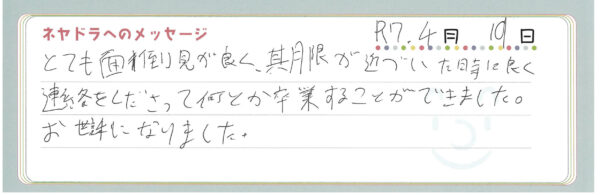 ネヤドラへのメッセージ
R7.4月10日
とても面倒見が良く、其月限が近づいた時に良く
連絡をしださって何とか卒業することができました。
お世話になりました。